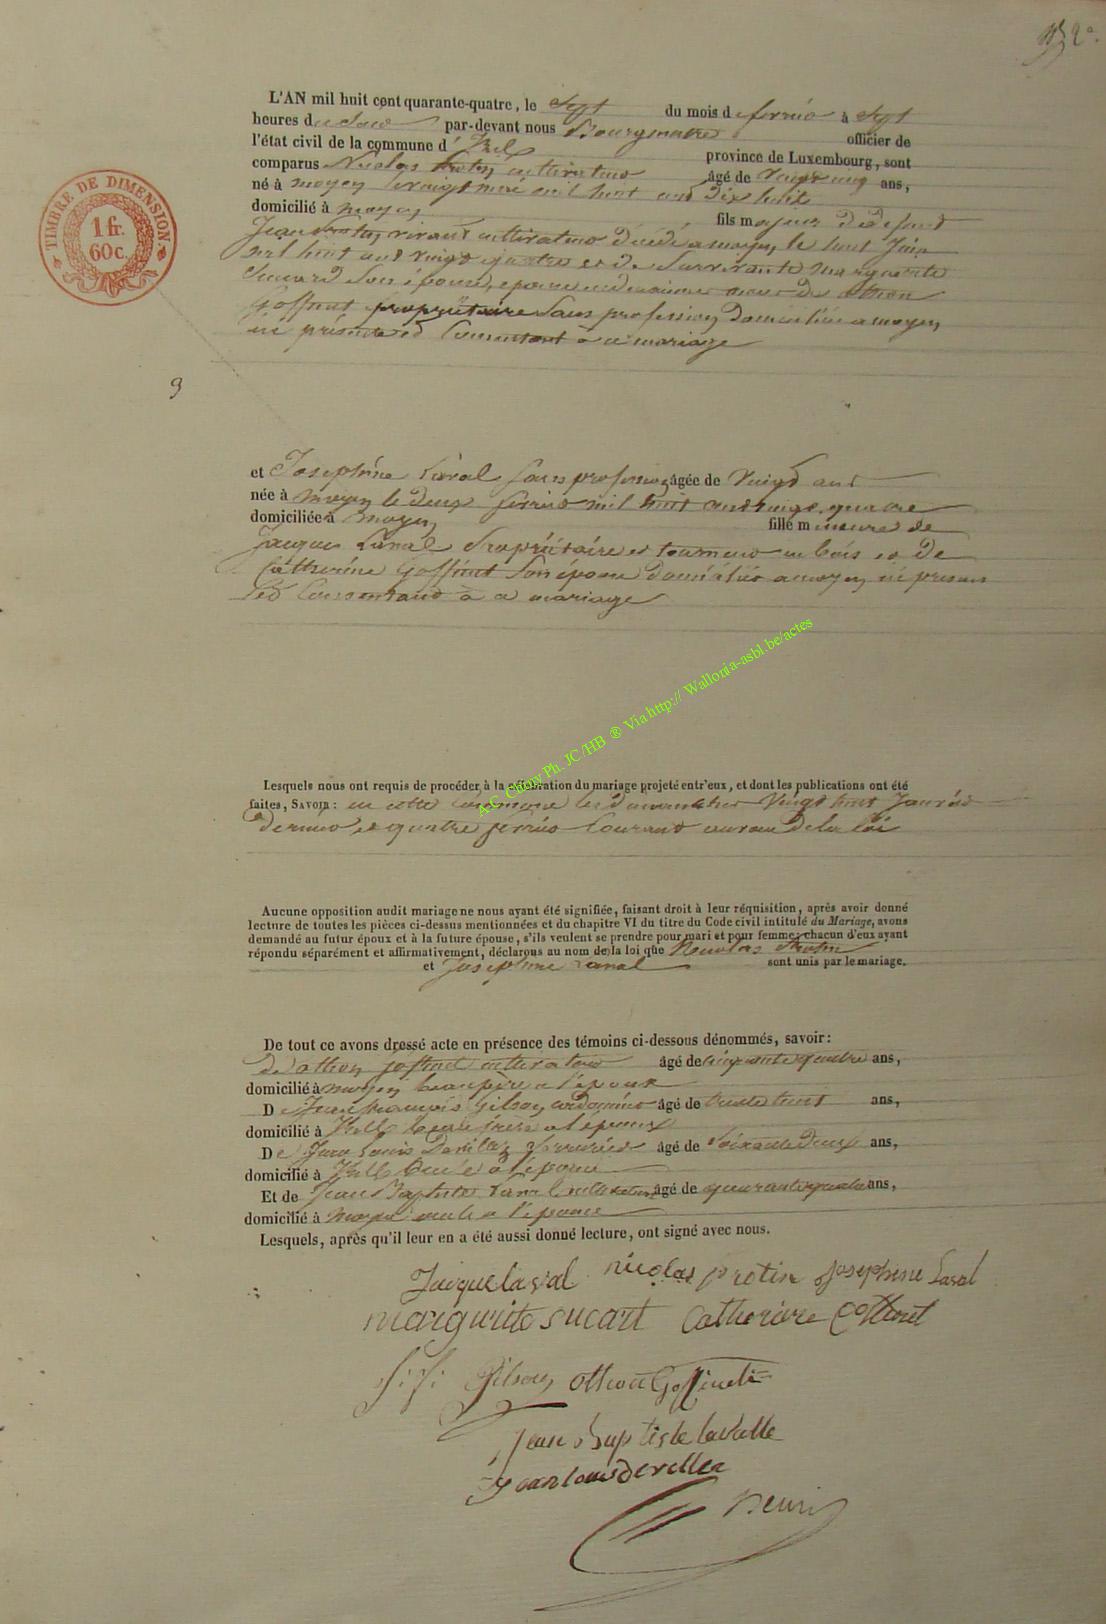 152e
L'AN mil huit cent quarante-quatre, le Sept du mois d e fevrier à Sept
heures d u Soir par-devant nous Bourgmestre officier de
l'état civil de la commune d' Izel province de Luxembourg, sont
comparus Nicolas Protin cultivateur âgé de vingt cinq ans,
né à moyen mil huit cent dix huit
domicilié à moyen fils m ajeur de defunt
Jean Protin vivant cultivateur décédé a moyen le huit Juin
mil huit cent vingt quatre et de Survivante Marguerite
Sucard Son épouse, epouse de othon
Goffinet propriétaire Sans profession Domiciliée a moyen
ici présente et Consentant à ce mariage
9
et Josephine Laval Sans profession âgée de Vingt ans
née à moyen le deux fevrier mil huit cent vingt quatre
domiciliée à moyen fille m ineure de
Jacque Laval Propriétaire et tourneur en bois et de
Catherine Goffinet Son épouse domiciliés a moyen ici présens
et Consentand à ce mariage
TIMBRE DE DIMENSION
1 fr.
60 c.
A.C. Chiny Ph. JC /HB ® Via http:// Wallonia-asbl.be/actes
Lesquels nous ont requis de procéder à la célébration du mariage projeté entr'eux, et dont les publications ont été
faites, SAVOIR : en cette Commune les dimanches Vingt huit Janvier
dernier et quatre fevrier Courant au vœu de la loi
Aucune opposition audit mariage ne nous ayant été signifiée, faisant droit à leur réquisition, après avoir donné
lecture de toutes les pièces ci-dessus mentionnées et du chapitre VI du titre du Code civil intitulé du Mariage, avons
demandé au futur époux et à la future épouse, s'ils veulent se prendre pour mari et pour femme; chacun d'eux ayant
répondu séparément et affirmativement, déclarons au nom de la loi que Nicolas Protin
et Josephine Laval sont unis par le mariage.
De tout ce avons dressé acte en présence des témoins ci-dessous dénommés, savoir:
de othon goffinet cultivateur âgé de cinquante quatre ans,
domicilié à moyen beau père a l'époux
D e Jean françois Gilson cordonnier âgé de trente huit ans,
domicilié à Izell beau frère a l'époux
D e Jean Louis Deviller âgé de Soixante Deux ans,
domicilié à Izell a l'épouse
Et de Jean Baptiste Laval cultivateur âgé de quarante quatre ans,
domicilié à moyen oncle a l'épouse
Lesquels, après qu'il leur en a été aussi donné lecture, ont signé avec nous.
Jacque laval nicolas protin Josephine Laval
marguerite sucart Catherine Goffinet
J: f: Gilson othon Goffinet
Jean Baptiste lavalle
Jean louis deviller
henri